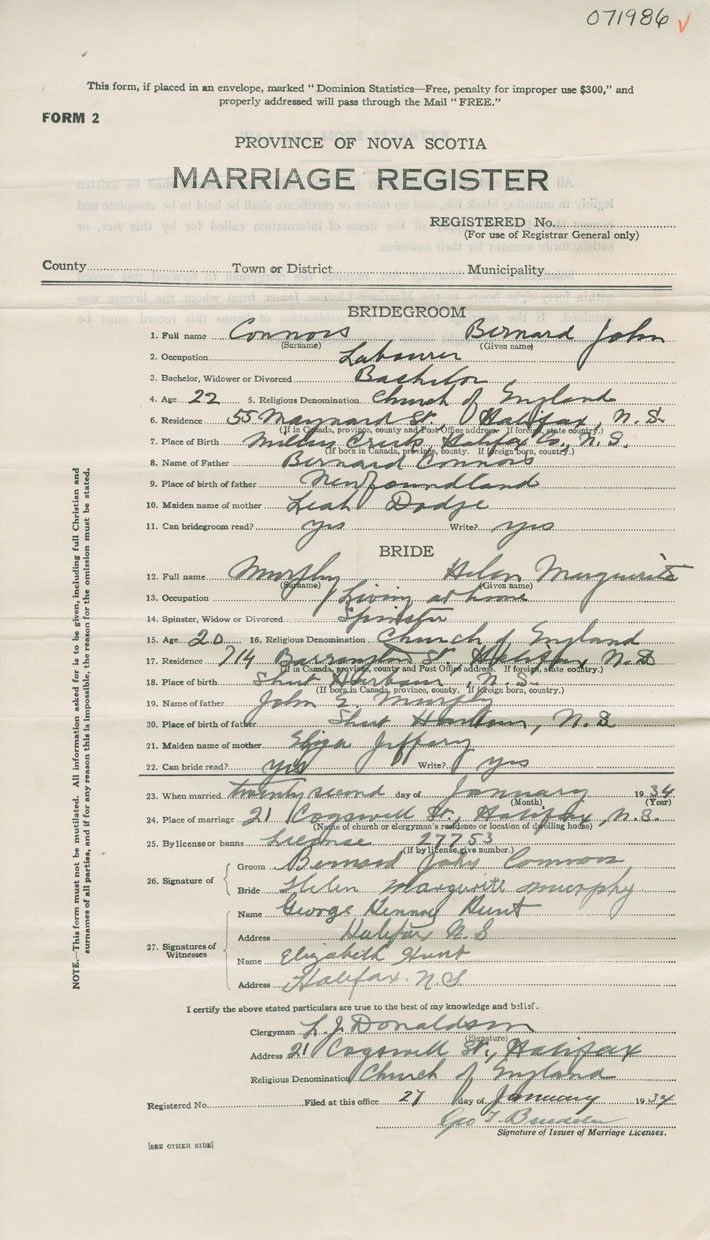 071986 ✓
This form, if placed in an envelope, marked "Dominion Statistics—Free, penalty for improper use $300," and
properly addressed will pass through the Mail "FREE."
FORM 2
PROVINCE OF NOVA SCOTIA
MARRIAGE REGISTER
REGISTERED No.
(For use of Registrar General only)
County Town or District Municipality
BRIDEGROOM
1. Full name Connors Bernard John
(Surname) (Given name)
2. Occupation Labourer
3. Bachelor, Widower or Divorced Bachelor
4. Age 22 5. Religious Denomination Church of England
6. Residence 55 Maynard St., Halifax, N. S.
(If in Canada, province, county and Post Office address. If foreign, state country.)
7. Place of Birth Halifax Co., N. S.
(If born in Canada, province, county. If foreign born, country.)
8. Name of Father Bernard Connors
9. Place of birth of father Newfoundland
10. Maiden name of mother Leah Dodge
11. Can bridegroom read? yes Write? yes
BRIDE
12. Full name Murphy Helen Marguerite
(Surname) (Given name)
13. Occupation Living at home
14. Spinster, Widow or Divorced Spinster
15. Age 20 16. Religious Denomination Church of England
17. Residence 714 Barrington St., Halifax, N. S
(If in Canada, province, county and Post Office address. If foreign, state country.)
18. Place of birth Harbour, N. S.
(If born in Canada, province, county. If foreign born, country.)
19. Name of father John Murphy
20. Place of birth of father Harbour, N. S
21. Maiden name of mother Eliza Jeffery
22. Can bride read? yes Write? yes
23. When married twenty second day of January 1934
(Month) (Year)
24. Place of marriage 21 Cogswell St., Halifax, N. S.
(Name of church or clergyman's residence or location of dwelling house)
25. By license or banns License 27753
(If by license, give number.)
26. Signature of Groom Bernard John Connors
Bride Helen Marguerite Murphy
27. Signatures of Witnesses
Name George Hunt
Address Halifax N. S
Name Elizabeth Hunt
Address Halifax. N.S
I certify the above stated particulars are true to the best of my knowledge and belief.
Clergyman L. J. Donaldson
(Signature)
Address 21 Cogswell St., Halifax
Religious Denomination Church of England
Registered No. Filed at this office 27 day of January 1934
Geo T.
Signature of Issuer of Marriage Licenses.
[SEE OTHER SIDE]
NOTE.—This form must not be mutilated. All information asked for is to be given, including full Christian and
surnames of all parties, and if for any reason this is impossible, the reason for the omission must be stated.